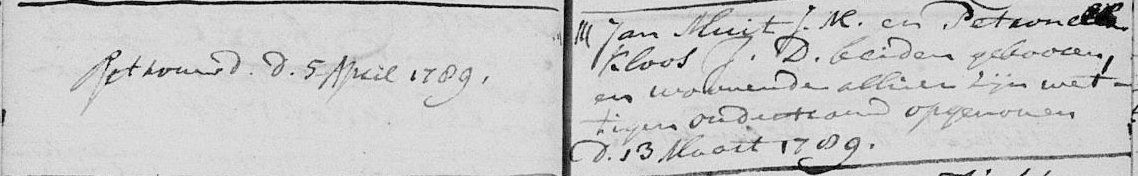 Getrouwd. d. 5 April 1789.
Jan Muit J. M. en Petronella
Kloos J. D. beiden gebooren,
en woonende alhier zijn wet-
tigen ondertrouw opgenomen
d. 13 Maart 1789.